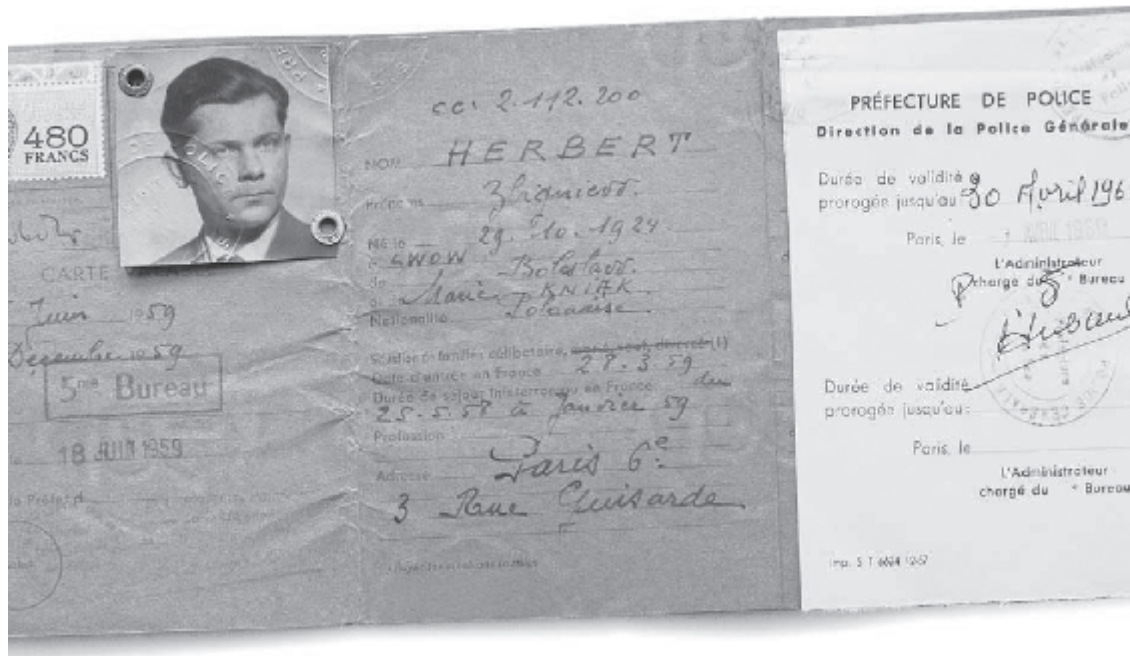 480
FRANCS
CARTE
Juin 1959
Décembre 1959
5me Bureau
18 JUIN 1959
cc: 2.112.200
NOM HERBERT
Prénoms Zbigniew
Né le 29.10.1924
à LWOW
de Boleslaw
et Marie KNIAK
Nationalité Polonaise
Situation de famille: célibataire, marié, veuf, divorcé (1)
Date d'entrée en France 28.3.59
Durée de séjour ininterrompu en France du
25.5.58 à Janvier 59
Profession
Adresse Paris 6e
3 Rue Guisarde
PRÉFECTURE DE POLICE
Direction de la Police Générale
Durée de validité
prorogée jusqu'au 30 Avril 196
Paris, le
L'Administrateur
chargé du 5e Bureau
Durée de validité
prorogée jusqu'au
Paris, le
L'Administrateur
chargé du Bureau